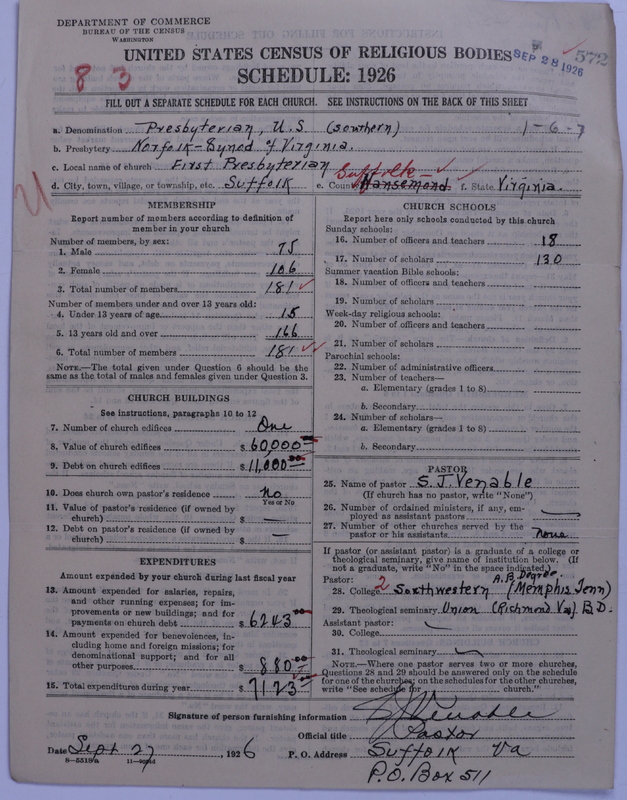 DEPARTMENT OF COMMERCE
BUREAU OF THE CENSUS
WASHINGTON
UNITED STATES CENSUS OF RELIGIOUS BODIES
SCHEDULE: 1926
SEP 28 1926
572
8 3
FILL OUT A SEPARATE SCHEDULE FOR EACH CHURCH. SEE INSTRUCTIONS ON THE BACK OF THIS SHEET
a. Denomination Presbyterian, U.S. (Southern) 1-6-7
b. Presbytery Norfolk-Synod of Virginia.
c. Local name of church First Presbyterian
Suffolk
d. City, town, village, or township, etc. Suffolk e. County Nansemond f. State Virginia.
MEMBERSHIP
Report number of members according to definition of member in your church
Number of members, by sex:
1. Male 75
2. Female 106
3. Total number of members 181
Number of members under and over 13 years old:
4. Under 13 years of age 15
5. 13 years old and over 166
6. Total number of members 181
NOTE.—The total given under Question 6 should be
same as the total of males and females given under Question 3.
CHURCH BUILDINGS
See instructions, paragraphs 10 to 12
7. Number of church edifices One
8. Value of church edifices $ 60,000
9. Debt on church edifices $ 11,000
10. Does church own pastor's residence No
Yes or No
11. Value of pastor's residence (if owned by
church) $ —
12. Debt on pastor's residence (if owned by
church) $ —
EXPENDITURES
Amount expended by your church during last fiscal year
13. Amount expended for salaries, repairs,
and other running expenses; for im-
provements or new buildings; and for
payments on church debt $ 6243
14. Amount expended for benevolences, in-
cluding home and foreign missions; for
denominational support; and for all
other purposes $ 880
15. Total expenditures during year $ 7123
CHURCH SCHOOLS
Report here only schools conducted by this church
Sunday schools:
16. Number of officers and teachers 18
17. Number of scholars 130
Summer vacation Bible schools:
18. Number of officers and teachers
19. Number of scholars
Week-day religious schools:
20. Number of officers and teachers
21. Number of scholars
Parochial schools:
22. Number of administrative officers
23. Number of teachers—
a. Elementary (grades 1 to 8)
b. Secondary
24. Number of scholars—
a. Elementary (grades 1 to 8)
b. Secondary
PASTOR
25. Name of pastor S. J. Venable
(If church has no pastor, write "None")
26. Number of ordained ministers, if any, em-
ployed as assistant pastors —
27. Number of other churches served by the
pastor or his assistants. none
If pastor (or assistant pastor) is a graduate of a college or
theological seminary, give name of institution below. (If
not a graduate, write "No" in the space indicated.)
Pastor: A.B. Degree.
28. College 2 Southwestern (Memphis Tenn)
29. Theological seminary Union (Richmond Va) B.D.
Assistant pastor:
30. College
31. Theological seminary
NOTE.—Where one pastor serves two or more churches,
Questions 28 and 29 should be answered only on the schedule
for one of the churches; on the schedules for the other churches,
write "See schedule for church."
Signature of person furnishing information S J Venable
Official title Pastor
Date Sept 27, 1926 P. O. Address Suffolk Va
P.O. Box 511